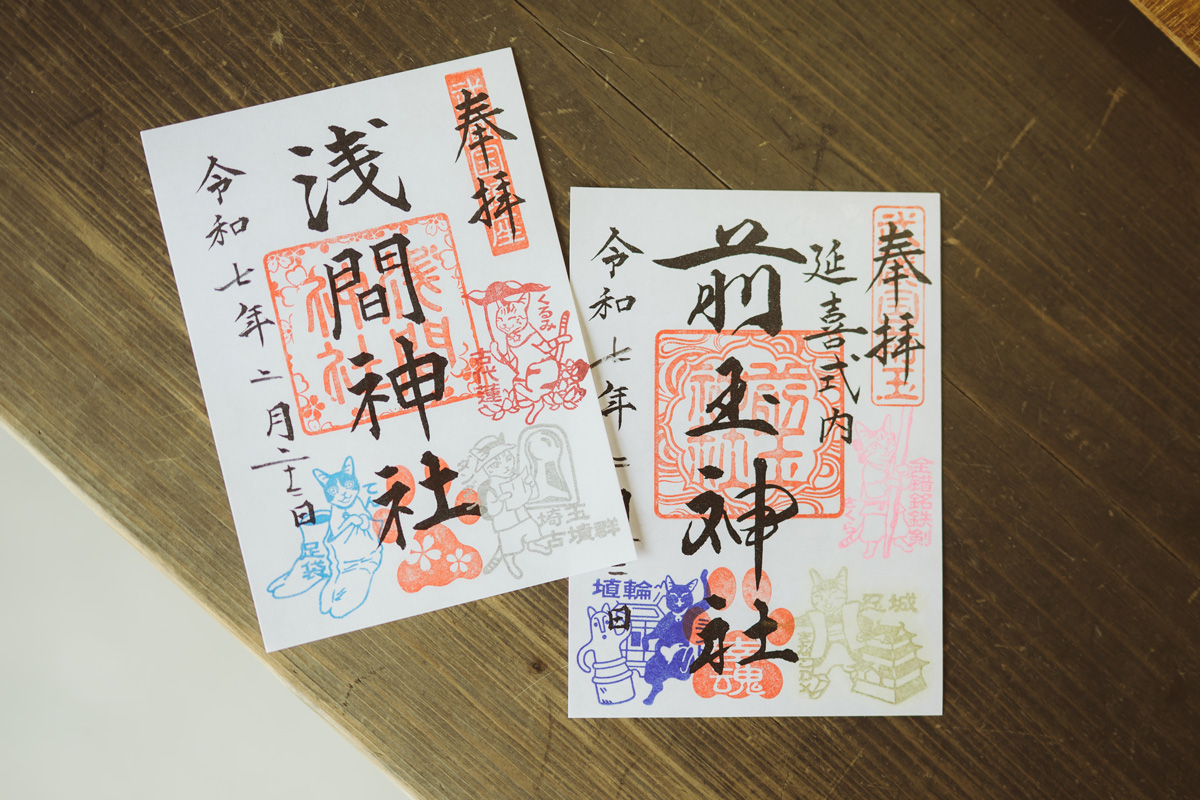 奉拝
浅間神社
浅間
神社
令和七年二月二十二日
くるみ
古代蓮
埼玉
古墳群
足袋
奉拝
延喜式内
前玉神社
前玉
神社
令和七年
日
金錯銘鉄剣
忍城
埴輪
幸
魂